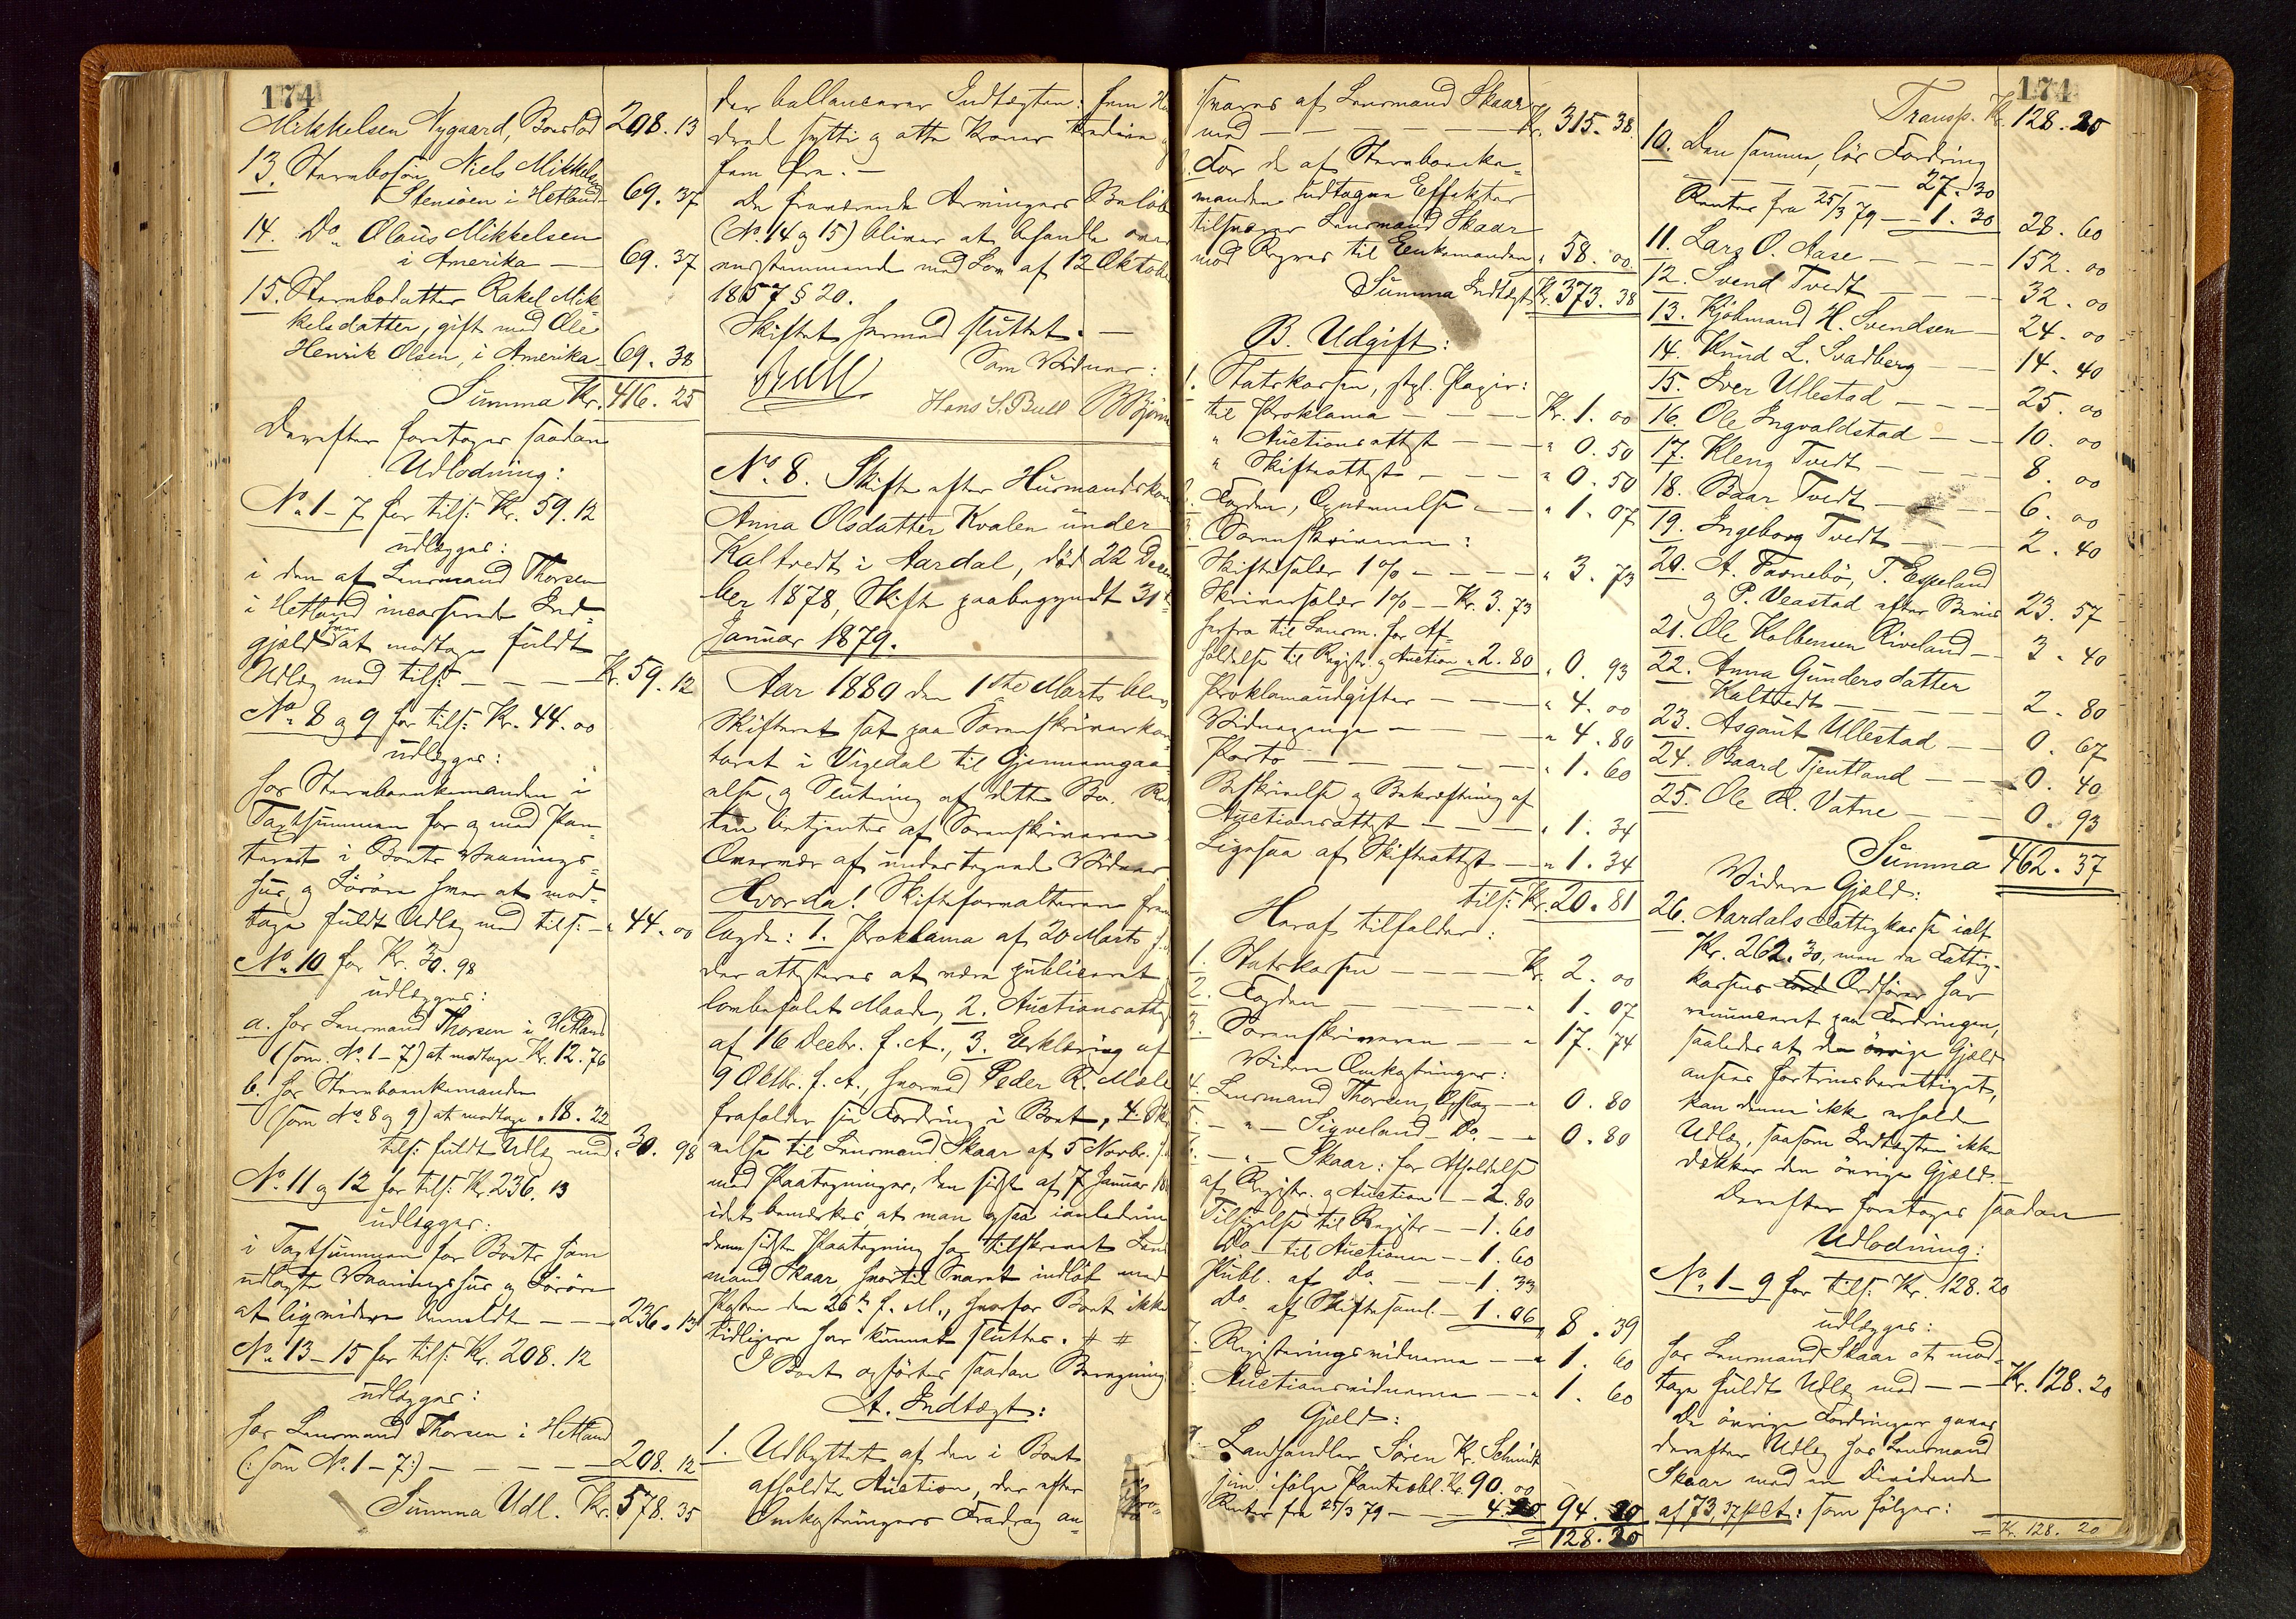 174
Mikkelsen Nygaard, Boested 208. 13
13. Stervbosøn Niels Mikkelsen
Stensöen i Hetland 69. 37
14. Do. Olaus Mikkelsen
i Amerika — 69. 37
15. Stervbodatter Rakel Mik
kelsdatter, gift med Ole
Henrik Olsen, i Amerika 69. 38
Summa Kr. 416. 25
Derefter foretoges saadan
Udlodning:
No. 1-7 for tils: Kr. 59. 12
udlægges:
i den af Lensmand Thorsen
i Hetland incasserede Ind-
gjæld at modtage fuldt
Udlæg med tils: — — — Kr. 59. 12
No. 8 og 9 for tils: Kr. 44. 00
udlægges:
hos Stervboenkemanden i
Taxtsummen for og med Pan-
teret i Boets Vaanings-
hus og Löröre har at mod-
tage fuldt Udlæg med tils: — " 44. 00
No. 10 for Kr. 30. 98
udlægges:
a. hos Lensmand Thorsen i Hetland
(som No. 1-7) at modtage Kr. 12. 76
b. hos Stervboenkemanden
(som No. 8 og 9) at modtage " 18. 22
tils: fuldt Udlæg med " 30. 98
No. 11 og 12 for tils: Kr. 236. 13
udlægges:
i Taxtsummen for Boets som
udlagte Vaaningshus og Löröre
at ligvidere anmeldt — — " 236. 13
No. 13-15 for tils: Kr. 208. 12
udlægges:
hos Lensmand Thorsen i Hetland
(: som No. 1-7:) — — — — 208. 12
Summa Udl. Kr. 578. 35
der ballancerer Indtægten: fem Hun
dred sytti og otte Kroner tredive og
fem Øre. —
De fraværende Arvingers Beløb
(No. 14 og 15) bliver at behandle over
ensstemmende med Lov af 12 Oktober
1857 § 20.
Skiftet hermed sluttet. —
Bull Som Vidner:
Hans S. Bull
No. 8. Skifte efter Husmandskone
Anna Olsdatter Kvalen under
Kaltvedt i Aardal, död 22 Decem
ber 1878, Skifte paabegyndt 31te
Januar 1879.
Aar 1880 den 1ste Marts blev
Skifteret sat paa Sorenskriverkon-
toret i Vigedal til Gjennemgaa-
else og Slutning af dette Bo. Ret
ten betjentes af Sorenskriveren
Overvær af undertegnede Vidner
Hvorda! Skifteforvalteren frem
lagde: 1. Proklama af 20 Marts f. A.
der attesteres at være publiceret
lovbefalet Maade, 2. Auctionsattest
af 16 Decbr. f. A., 3. Erklæring af
9 Oktbr. f. A., hvorved Peder R. Mæle
frafalder sin Fordring i Boet, 4. Skri
velse til Lensmand Skaar af 5 Novbr. f. A.
med Paategninger, den sidste af 7 Januar
idet bemærkes, at man ogsaa i anledning
denne sidste Paategning har tilskrevet Lens
mand Skaar hvortil Svaret indløb med
Posten den 26de f. M., hvorfor Boet ikke
tidligere har kunnet sluttes. # #
I Boet opförtes saadan Beregning
A. Indtægt:
1. Udbyttet af den i Boet
afholdte Auction, der efter
Omkostningers Fradrag an-
174
svares af Lensmand Skaar
med — — — — — Kr. 315. 38
2. For de af Stervboenke-
manden udtagne Effekter
tilsvarer Lensmand Skaar
mod Regres til Enkemanden " 58. 00
Summa Indtægt Kr. 373. 38
B. Udgift:
1. Statskassen, stpl. Papir:
til Proklama — — — Kr. 1. 00
" Auctionsattest — — " 0. 50
" Skifteattest — — — " 0. 50
2. Fogden, Oversendelse — " 1. 07
3. Sorenskriveren:
Skiftesalær 1% — — — — " 3. 73
Skriversalær 1% — — Kr. 3. 73
herfra til Lensm. for Af-
holdelse til Registr. og Auction " 2. 80 " 0. 93
Proklamaudgifter — — " 4. 00
Vidnepenge — — — " 4. 80
Porto — — — — — " 1. 60
Beskrivelse og Bekræftning af
Auctionsattest — — — " 1. 34
Ligesaa af Skifteattest — " 1. 34
tils: Kr. 20. 81
Heraf tilfalder:
1. Statskassen — — — Kr. 2. 00
2. Fogden — — — — " 1. 07
3. Sorenskriveren — — " 17. 74
Videre Omkostninger:
4. Lensmand Thorsen, Opslag — " 0. 80
5. — " — Sigveland — Do. — " 0. 80
6. — " — Skaar: for Afholdelse
af Registr. og Auction — 2. 80
Tilsigelse til Registr. — 1. 60
Do. til Auctionen — 1. 60
Publ. af Do. — — 1. 33
Do. af Skiftesaml. — 1. 06 " 8. 39
7. Registeringsvidnerne — — " 1. 60
8. Auctionsvidnerne — — " 1. 60
Gjæld:
9. Landhandler Sören Kr. Schmidt
jun. ifölge Pantobl. Kr. 90. 00
Renter fra 25/3 79 — — 4. 20 94. 20
= 128. 20
Transp. Kr. 128. 20
10. Den samme, lös Fordring
— — — — 27. 30
Renter fra 25/3 79 — 1. 30 28. 60
11. Lars O. Aase — — — 152. 00
12. Svend Tvedt — — — 32. 00
13. Kjöbmand H. Svendsen — 24. 00
14. Knud L. Svadberg — — 14. 40
15. Iver Ullestad — — — 25. 00
16. Ole Ingvaldstad — — 10. 00
17. Kleng Tvedt — — — 8. 00
18. Baar Tvedt — — — 6. 00
19. Ingeborg Tvedt — — 2. 40
20. A. Tasnebö, T. Espeland
og P. Veastad efter Bevis 23. 57
21. Ole Kolbensen Riveland — 3. 40
22. Anna Gundersdatter
Kaltvedt — — — — 2. 80
23. Asgaut Ullestad — — 0. 67
24. Baard Tjentland — — 0. 40
25. Ole R. Vatne — — — 0. 93
Summa 462. 37
Videre Gjæld:
26. Aardals Fattigkasse ialt
Kr. 262. 30, men da Fattig-
kassens Ordförer har
renunceret paa Fordringen,
saaledes at den övrige Gjæld
ansees fortrinsberettiget,
kan denne ikke erholde
Udlæg, saasom Indtægten ikke
dækker den övrige Gjæld. —
Derefter foretoges saadan
Udlodning:
No. 1-9 for tils: Kr. 128. 20
udlægges:
hos Lensmand Skaar at mod-
tage fuldt Udlæg med — — Kr. 128. 20
De övrige Fordringer gives
derefter Udlæg hos Lensmand
Skaar med en Dividende
af 73,37 pCt: som fölger:
= Kr. 128. 20